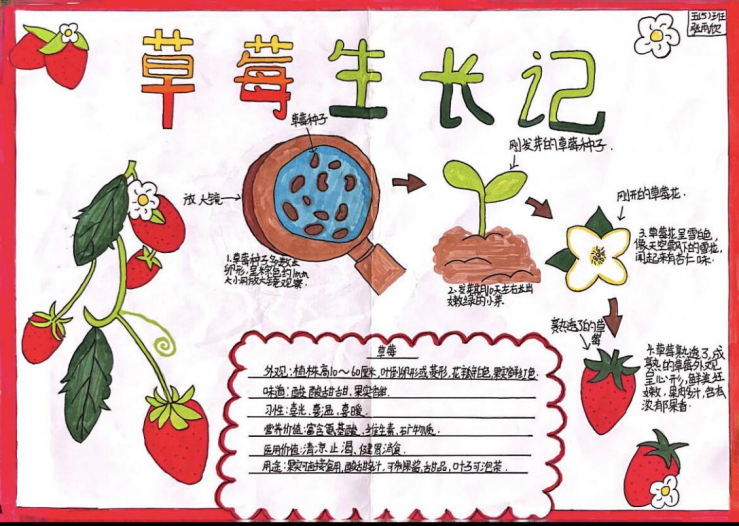 五(5)班
草莓生长记
草莓种子
放大镜
刚发芽的草莓种子.
刚开的草莓花.
1.草莓种子多数呈
卵形,呈棕色约1mm
大小用放大镜观察.
2.发芽期10天左右长出
嫩绿的小芽.
3.草莓花呈雪白色,
像天空飘下的雪花,
闻起来有杏仁味.
熟透了的草
莓
4.草莓熟透了,成
熟的草莓外观
呈心形,鲜美红
嫩,果肉多汁,含有
浓郁果香.
草莓
外观:植株高10~40厘米,叶倒卵形或菱形,花瓣白色,果实鲜红色.
味道:酸 酸甜甜,果实香甜.
习性:喜光、喜温、喜暖.
营养价值:富含氨基酸、维生素、矿物质.
医用价值:清凉止渴、健胃消食.
用途:果实可直接食用,酸甜多汁,可制果酱,甜品,叶子可泡茶.